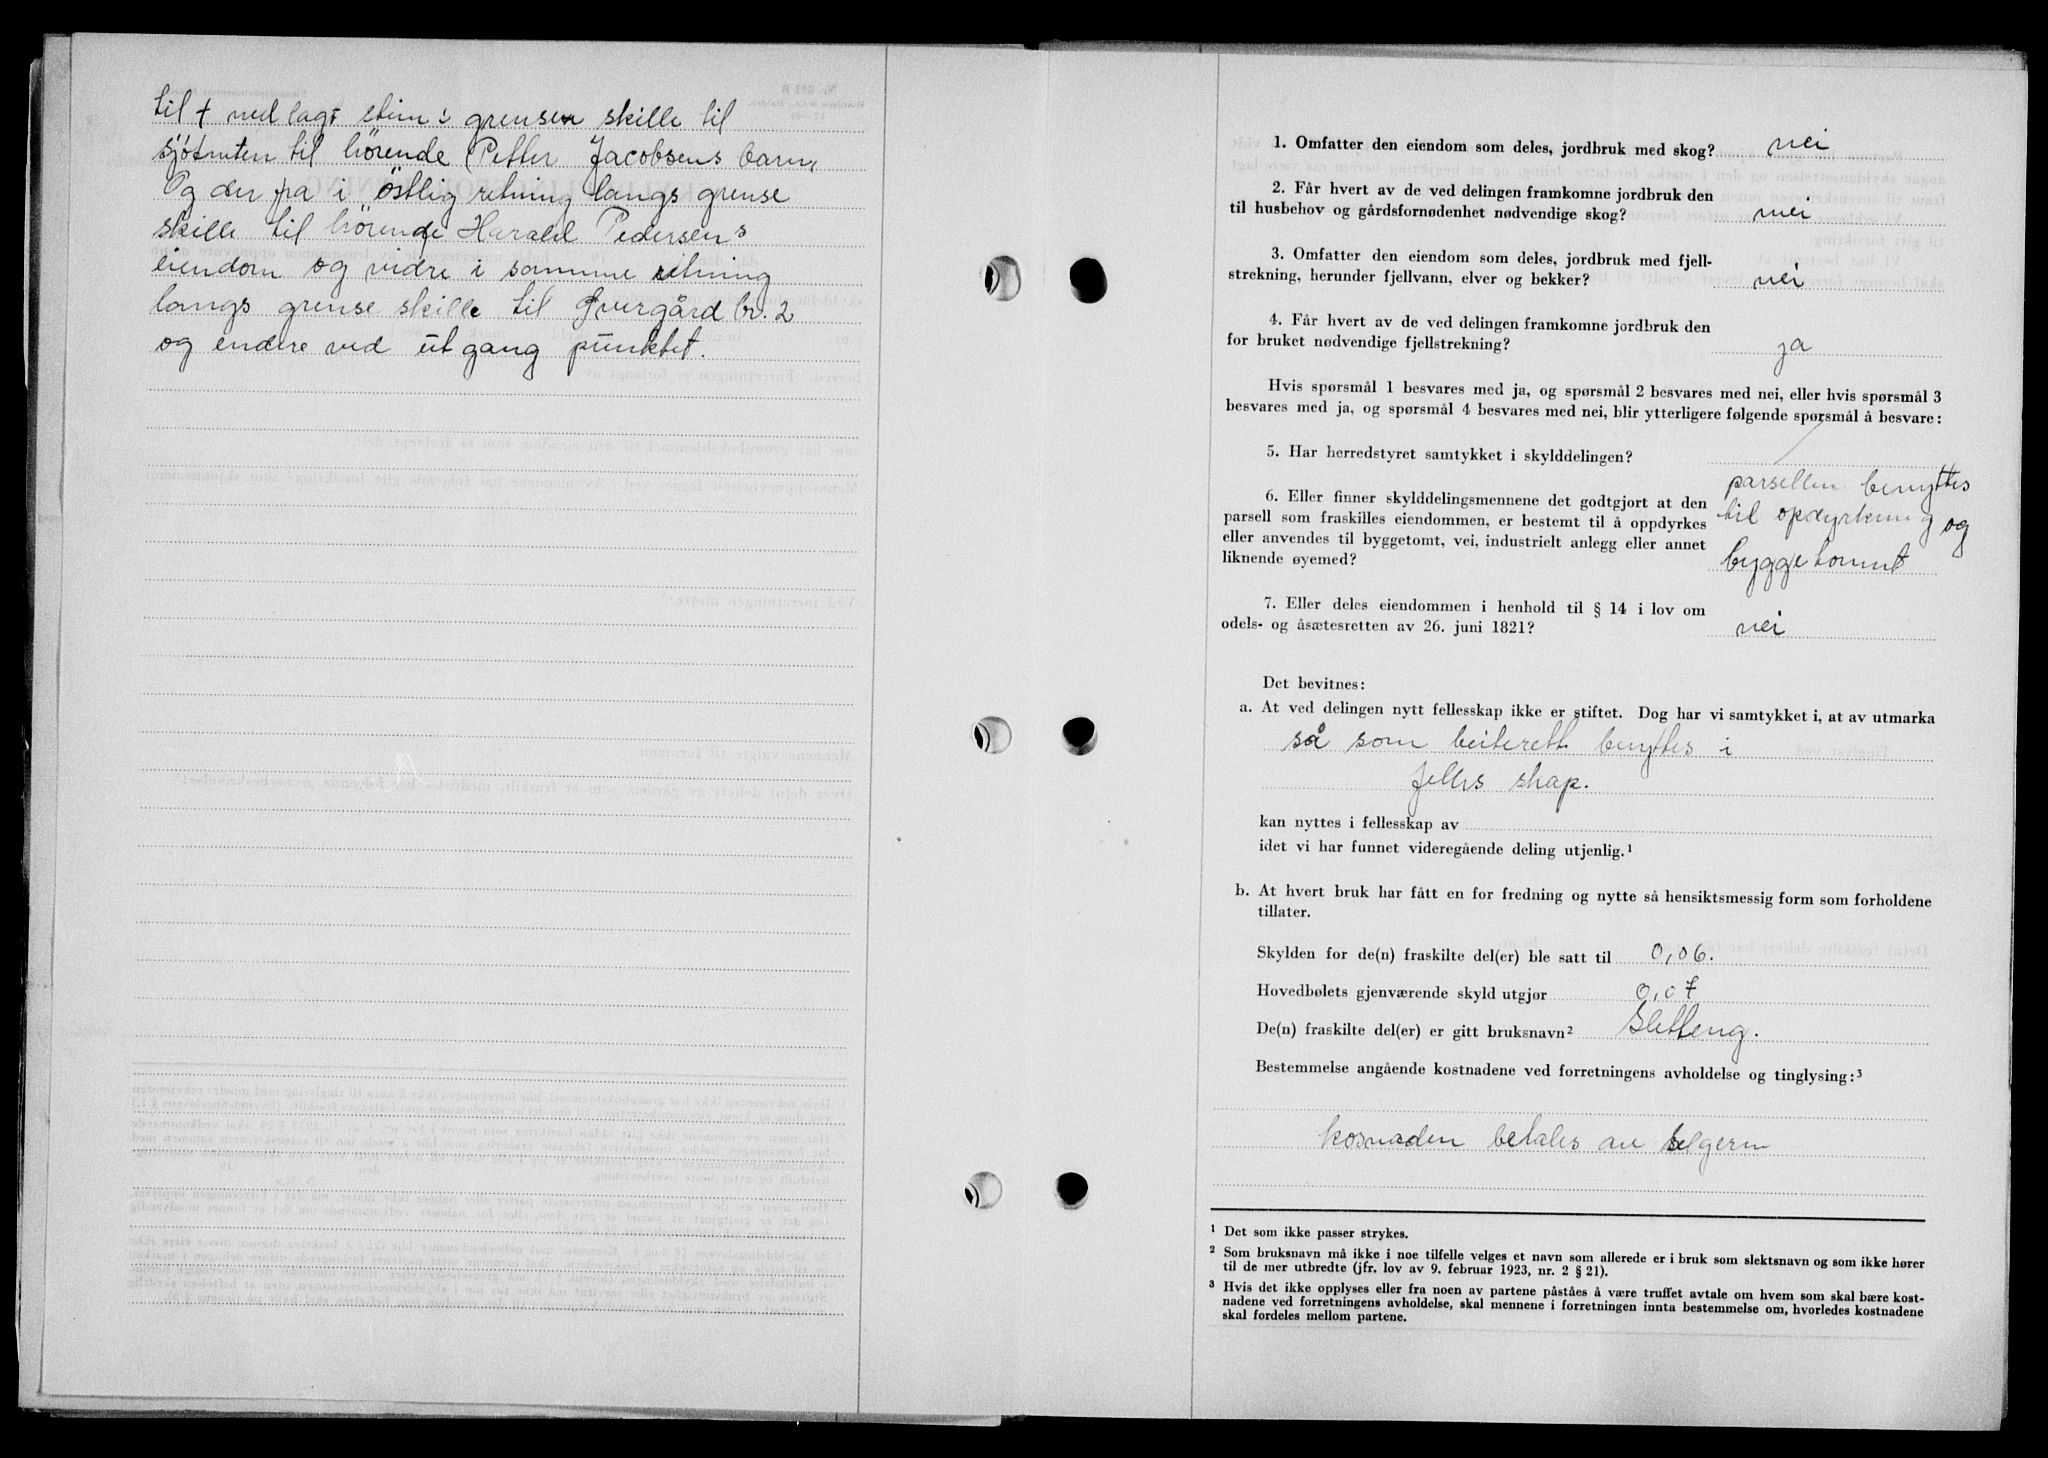 til + ned lagt stein i grensen skille til
sjötmten til hörende (Petter Jacobsens barn,
Og der pa i östlig retning langs grense
skille til hörende Harald Pedersens
eiendom og vidre i samme retning
langs grense skille til Ivergård br. 2
og endere ved utgang punktet.
1. Omfatter den eiendom som deles, jordbruk med skog? nei
2. Får hvert av de ved delingen framkomne jordbruk den
til husbehov og gårdsfornødenhet nødvendige skog? nei
3. Omfatter den eiendom som deles, jordbruk med fjell-
strekning, herunder fjellvann, elver og bekker? nei
4. Får hvert av de ved delingen framkomne jordbruk den
for bruket nødvendige fjellstrekning? ja
Hvis spørsmål 1 besvares med ja, og spørsmål 2 besvares med nei, eller hvis spørsmål 3
besvares med ja, og spørsmål 4 besvares med nei, blir ytterligere følgende spørsmål å besvare:
5. Har herredstyret samtykket i skylddelingen? /
6. Eller finner skylddelingsmennene det godtgjort at den
parsell som fraskilles eiendommen, er bestemt til å oppdyrkes
eller anvendes til byggetomt, vei, industrielt anlegg eller annet
liknende øyemed?
parsellen benyttes
til opdyrkning og
byggetommt
7. Eller deles eiendommen i henhold til § 14 i lov om
odels- og åsætesretten av 26. juni 1821? nei
Det bevitnes:
a. At ved delingen nytt fellesskap ikke er stiftet. Dog har vi samtykket i, at av utmarka
så som beiterett benyttes i
felles skap.
kan nyttes i fellesskap av
idet vi har funnet videregående deling utjenlig.¹
b. At hvert bruk har fått en for fredning og nytte så hensiktsmessig form som forholdene
tillater.
Skylden for de(n) fraskilte del(er) ble satt til 0,06.
Hovedbølets gjenværende skyld utgjør 0,07
De(n) fraskilte del(er) er gitt bruksnavn² Sletteng.
Bestemmelse angående kostnadene ved forretningens avholdelse og tinglysing:³
kosnaden betales av selgern
¹ Det som ikke passer strykes.
² Som bruksnavn må ikke i noe tilfelle velges et navn som allerede er i bruk som slektsnavn og som ikke hører
til de mer utbredte (jfr. lov av 9. februar 1923, nr. 2 § 21).
³ Hvis det ikke opplyses eller fra noen av partene påståes å være truffet avtale om hvem som skal bære kost-
nadene ved forretningens avholdelse, skal mennene i forretningen innta bestemmelse om, hvorledes kostnadene
skal fordeles mellom partene.